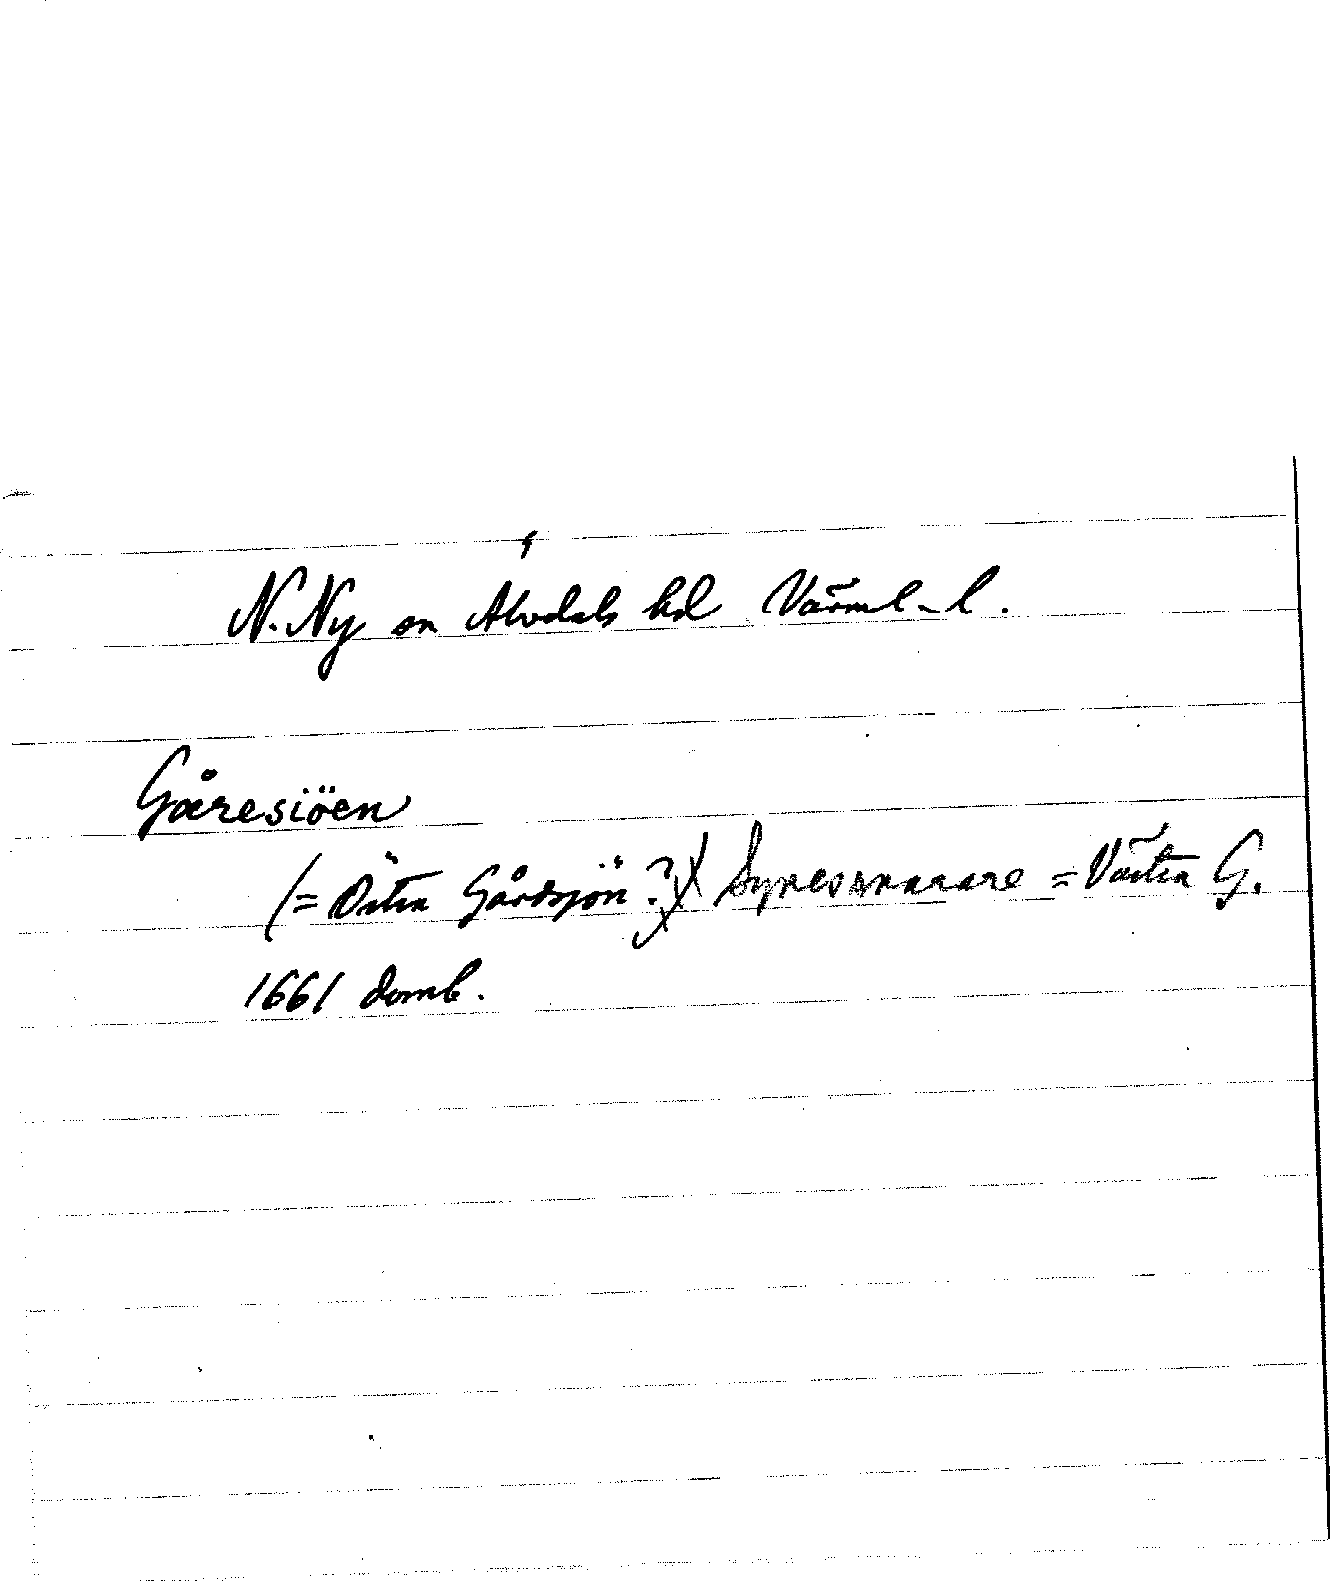 N. Ny sn Älvdals hd Värml-l.
Gåresiöen
(= Östra Gårdsjön ?) Synes snarare = Västra G.
1661 domb.